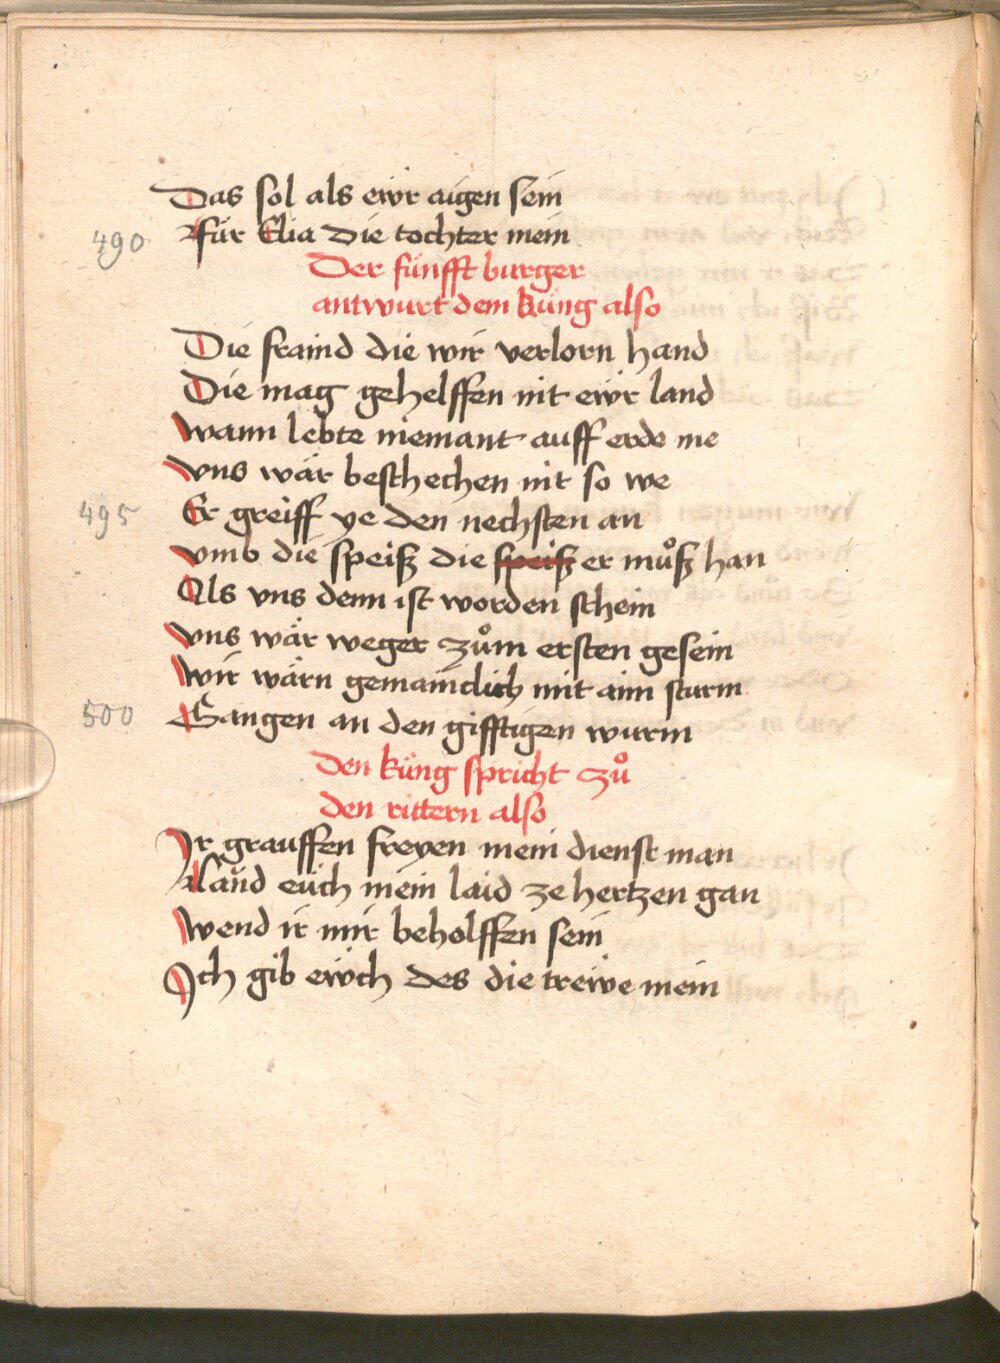 Das sol als ewr aigen sein
490 Für Elia die tochter mein
Der fünfft burger
antwurt dem küng also
Die fraind die wir verlorn hand
Die mag gehelffen nit ewr land
wann lebte niemant auff erde me
vns wär beschechen nit so we
495 Er greiff ye den nechsten an
vmb die speiß die speiß er muͦß han
Als vns denn ist worden schein
vns wär weger zuͦm ersten gesein
wir wärn gemainclich mit aim sturm
500 Gangen an den gifftigen wurm
Den küng spricht zuͦ
den rittern also
Ir grauffen freyen mein dienst man
Land euch mein laid ze hertzen gan
Wend ir mir beholffen sein
Ich gib ewch des die trewe mein